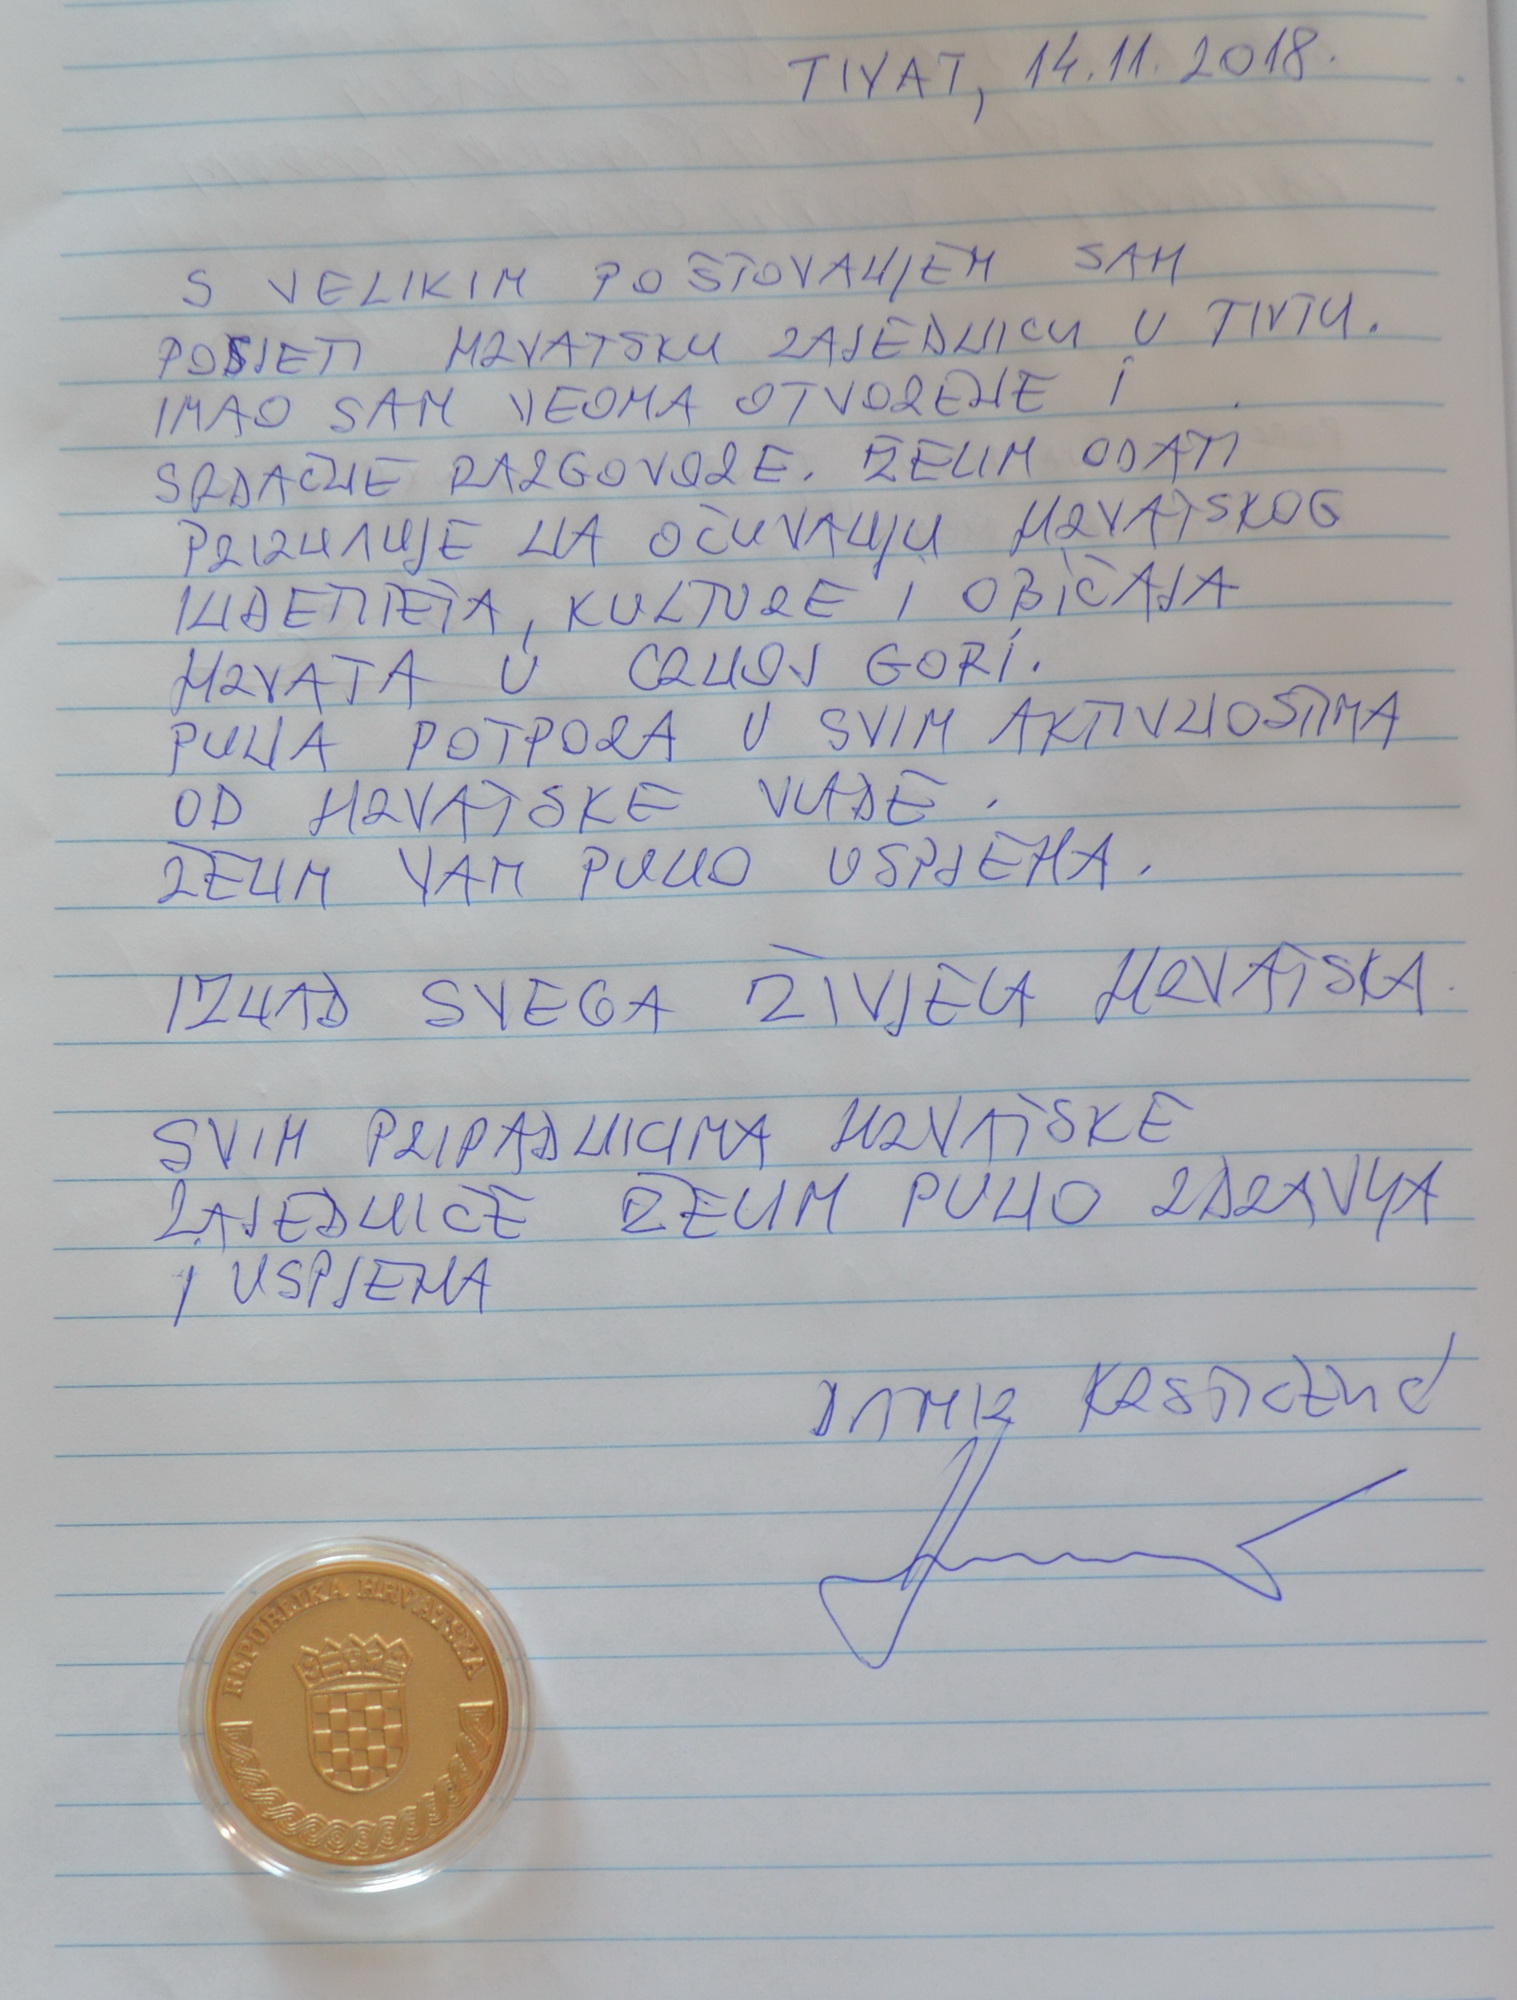 TIVAT, 14.11.2018.
S VELIKIM POŠTOVANJEM SAM
POSJETI HRVATSKU ZAJEDNICU U TIVTU.
IMAO SAM VEOMA OTVORENE I
SRDAČNE RAZGOVORE. ŽELIM ODATI
PRIZNANJE NA OČUVANJU HRVATSKOG
INDETITETA, KULTURE I OBIČAJA
HRVATA U CRNOJ GORI.
PUNA POTPORA U SVIM AKTIVNOSTIMA
OD HRVATSKE VLADE.
ŽELIM VAM PUNO USPJEHA.
IZNAD SVEGA ŽIVJELA HRVATSKA.
SVIM PRIPADNICIMA HRVATSKE
ZAJEDNICE ŽELIM PUNO ZDRAVLJA
I USPJEHA
DAMIR KRSTIČEVIĆ
REPUBLIKA HRVATSKA